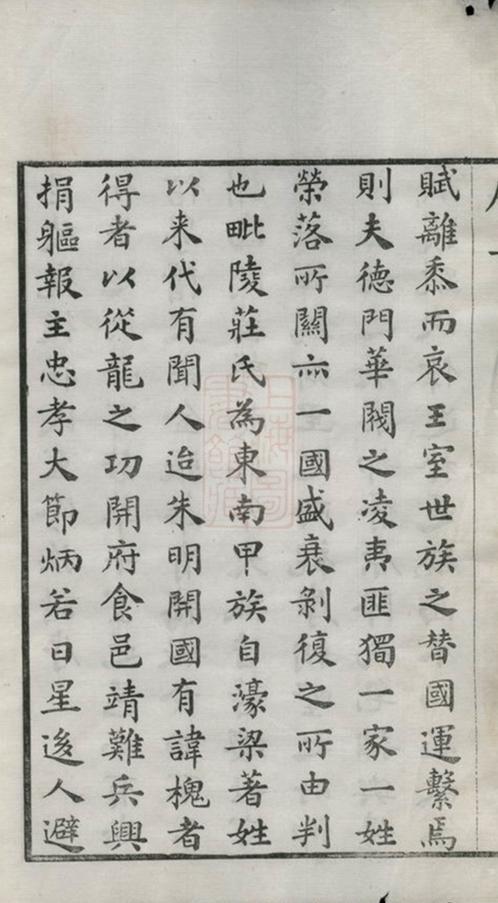 賦離黍而哀王室世族之替國運繫焉
則夫德門華閥之凌夷匪獨一家一姓
榮落所關亦一國盛衰剝復之所由判
也毗陵莊氏為東南甲族自濠梁著姓
以来代有聞人迨朱明開國有諱槐者
得者以從龍之功開府食邑靖難兵興
捐軀報主忠孝大節炳若日星逡人避